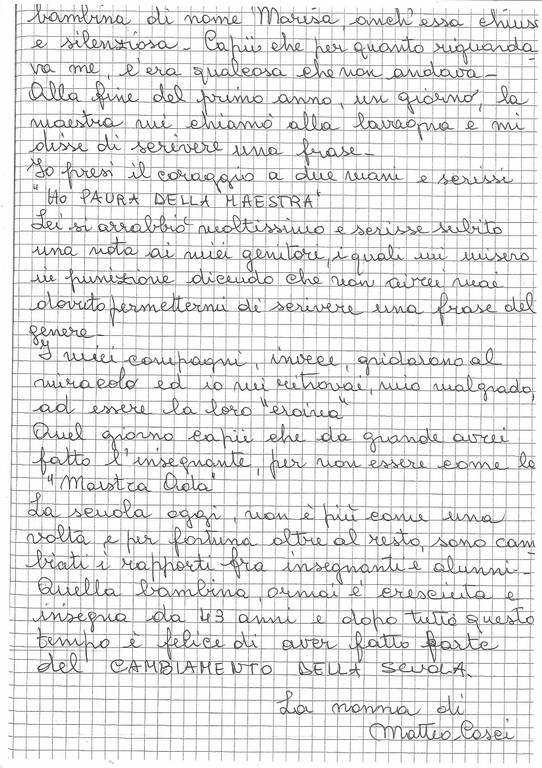 bambina di nome "Marisa, anch'essa chiusa
e silenziosa - Capii che per quanto riguarda
va me, c'era qualcosa che non andava -
Alla fine del primo anno, un giorno, la
maestra mi chiamò alla lavagna e mi
disse di scrivere una frase -
Io presi il coraggio a due mani e scrissi
"HO PAURA DELLA MAESTRA"
Lei si arrabbiò moltissimo e scrisse subito
una nota ai miei genitori, i quali mi misero
in punizione dicendo che non avrei mai
dovuto permettermi di scrivere una frase del
genere -
I miei compagni, invece, gridarono al
miracolo ed io mi ritrovai, mio malgrado,
ad essere la loro "eroina"
Quel giorno capii che da grande avrei
fatto l'insegnante, per non essere come la
"Maestra Ada"
La scuola oggi, non è più come una
volta e per fortuna oltre al resto, sono cam
biati i rapporti fra insegnanti e alunni -
Quella bambina, ormai è cresciuta e
insegna da 43 anni e dopo tutto questo
tempo è felice di aver fatto parte
del CAMBIAMENTO DELLA SCUOLA.
La nonna di
Matteo Casei